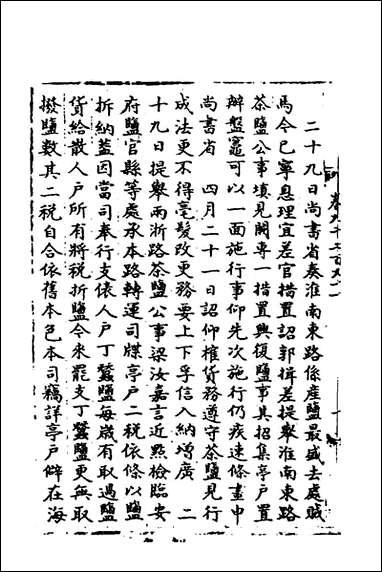 二十九日尚書省奏淮南東路係産鹽最盛去處賊
馬今已寧息理宜差官措置詔郭揖差提舉淮南東路
茶鹽公事填見闕專一措置興復鹽事其招集亭戶置
辦盤竈可以一面施行事仰先次施行仍疾速條畫申
尚書省　四月二十一日詔仰榷貨務遵守茶鹽見行
成法更不得毫髮改更務要上下孚信入納增廣　二
十九日提舉兩浙路茶鹽公事梁汝嘉言近點檢臨安
府鹽官縣等處承本路轉運司牒亭戶二稅依條以鹽
折納蓋因當司奉行支俵人戶丁蠶鹽每歲有取過鹽
貨給散人戶所有將稅折鹽今來罷支丁蠶鹽更無取
撥鹽數其二稅自合依舊本色本司竊詳亭戶僻在海